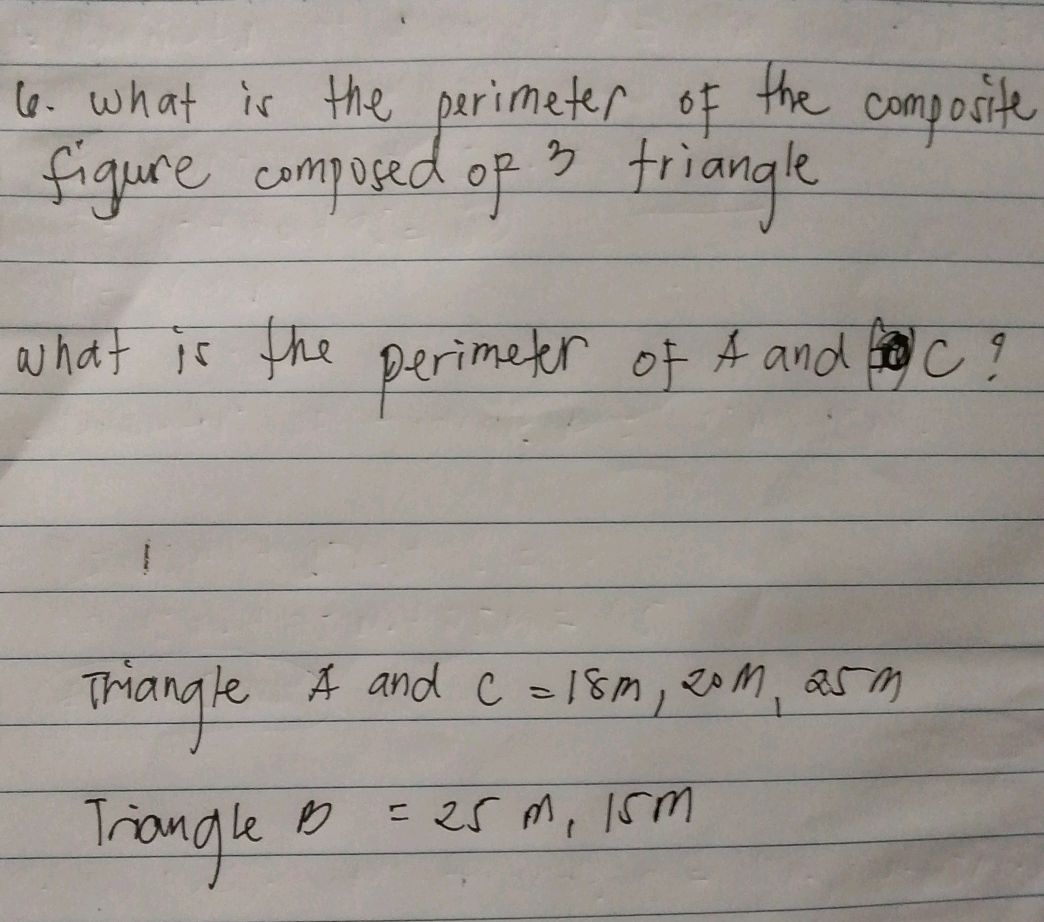 6. what is the perimeter of the composite
figure composed of 3 triangle
what is the perimeter of A and C?
Triangle A and C = 18m, 20m, 25m
Triangle B = 25 m, 15m